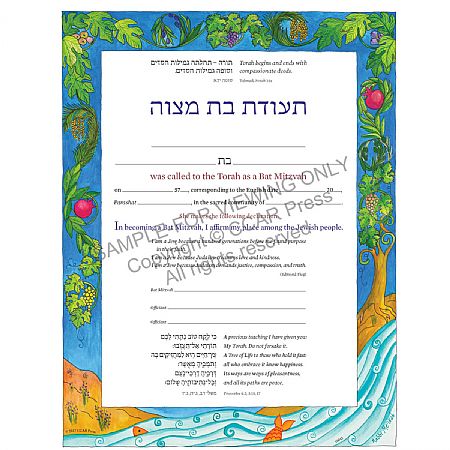 תורה – תחלתה גמילות חסדים
וסופה גמילות חסדים.
סוטה יד:א
Torah begins and ends with
compassionate deeds.
Talmud, Sotah 14a
תעודת בת מצוה
בת
was called to the Torah as a Bat Mitzvah
on 57 , corresponding to the English date, 20 ,
Parashat , in the sacred community of
She makes the following declaration:
In becoming a Bat Mitzvah, I affirm my place among the Jewish people.
I am a Jew because a hundred generations before me found purpose
in their faith.
I am a Jew because Judaism teaches me love and kindness.
I am a Jew because Judaism demands justice, compassion, and truth.
Bat Mitzvah
Officiant
Officiant
כי לקח טוב נתתי לכם
תורתי אל־תעזבו:
עץ־חיים היא למחזיקים בה
ותמכיה מאשר:
דרכיה דרכי־נעם
וכל־נתיבותיה שלום:
A precious teaching I have given you:
My Torah. Do not forsake it.
A Tree of Life to those who hold it fast:
all who embrace it know happiness.
Its ways are ways of pleasantness,
and all its paths are peace.
Proverbs 4:2, 3:18, 17
SAMPLE FOR VIEWING ONLY
Copyright © CCAR Press
All rights reserved